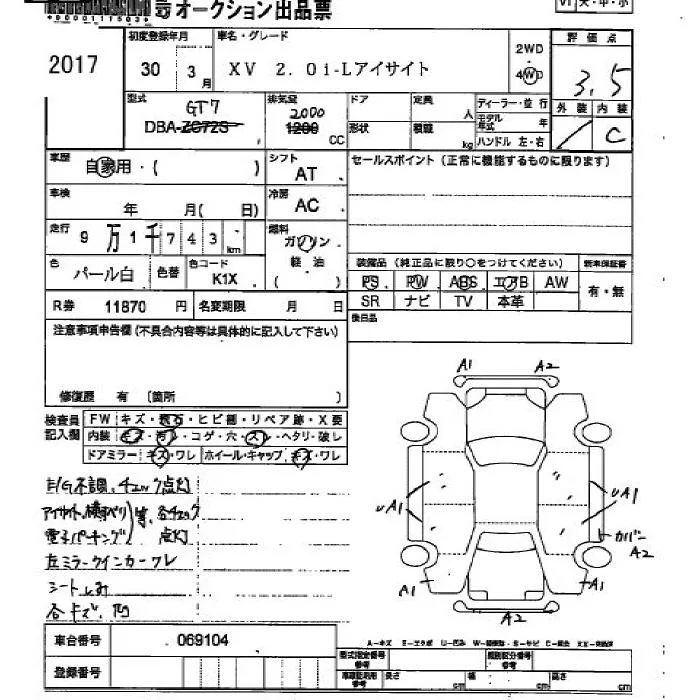 オークション出品票
*00001117503*
2017
初度登録年月 30 3月
車名・グレード XV 2.0i-Lアイサイト
2WD・4WD
評価点 3.5
外装 内装 C
型式 GT7
DBA-ZC72S
排気量 2000
1200 CC
ドア 形状
定員 人
積載 kg
ディーラー・並行
モデル年式 年
ハンドル 左・右
車歴 自家用・( )
シフト AT
セールスポイント(正常に機能するものに限ります)
車検 年 月( 日)
冷房 AC
走行 9万1千743 km
燃料 ガソリン 軽油 ( )
色 パール白 色替 色コード K1X
装備品(純正品に限り○をつけてください)
新車保証書 有・無
PS PW ABS エアB AW
SR ナビ TV 本革
R券 11870 円 名変期限 月 日
後日品
注意事項申告欄(不具合内容等は具体的に記入して下さい)
修復歴 有(箇所 )
検査員記入欄
FW キズ・飛石・ヒビ割・リペア跡・X要
内装 キズ・汚レ・コゲ・穴・スレ・ヘタリ・破レ
ドアミラー キズ・ワレ ホイール・キャップ キズ・ワレ
E/G不調、チェック点灯
アイサイト、横すべり等、各チェック
電子パーキング 点灯
左ミラーウインカーワレ
シートしみ
各キズ、凹
A1 A2
UA1 UA1
カバー A2
A1 A1
A2
車台番号 069104
登録番号
A-キズ E-エクボ U-凹み
型式指定番号 参考
類別区分番号 参考
長さ cm 幅 cm 高さ cm